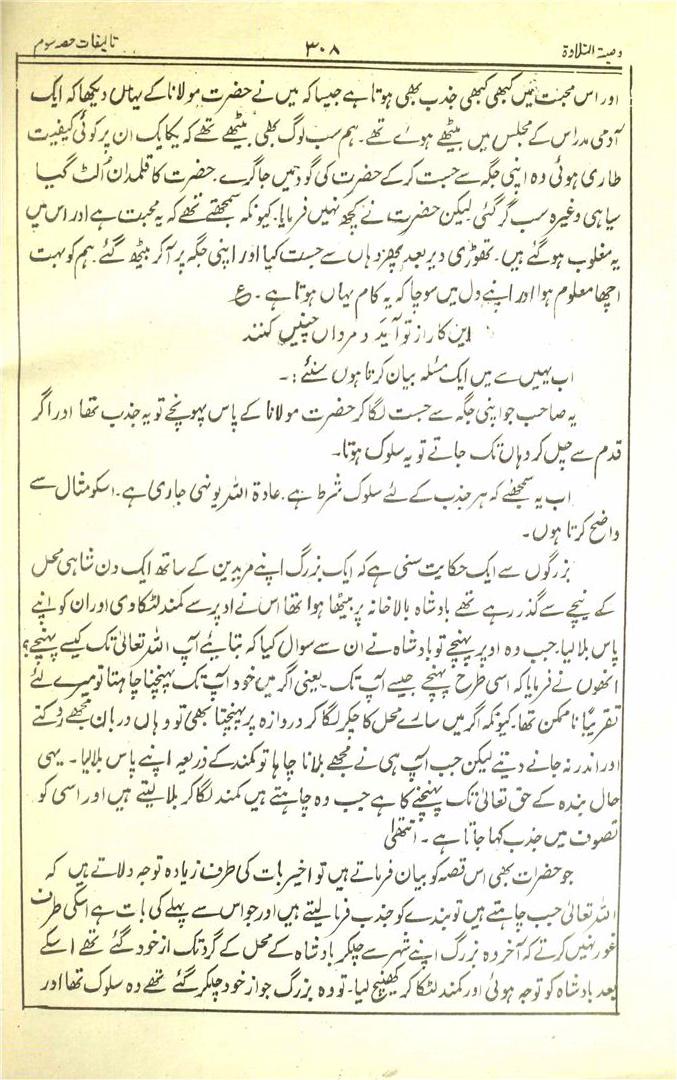 وصیۃ التلاوۃ
۳۰۸
تالیفات حصہ سوم
اور اس محبت میں کبھی کبھی جذب بھی ہوتا ہے جیسا کہ میں نے حضرت مولانا کے یہاں دیکھا کہ ایک
آدمی مدراس کے مجلس میں بیٹھے ہوئے تھے۔ ہم سب لوگ بھی بیٹھے تھے کہ یکایک ان پر کوئی کیفیت
طاری ہوئی وہ اپنی جگہ سے جست کر کے حضرت کی گود میں جاگرے۔ حضرت کا قلمدان اُلٹ گیا
سیاہی وغیرہ سب گر گئی لیکن حضرت نے کچھ نہیں فرمایا۔ کیونکہ سمجھتے تھے کہ یہ محبت ہے اور اس میں
یہ مغلوب ہوگئے ہیں۔ تھوڑی دیر بعد پھر وہاں سے جست کیا اور اپنی جگہ پر آکر بیٹھ گئے ہم کو بہت
اچھا معلوم ہوا اور اپنے دل میں سوچا کہ یہ کام یہاں ہوتا ہے۔ ع
ایں کار از تو آید و مرداں چنیں کنند
اب یہیں سے میں ایک مسئلہ بیان کرتا ہوں سنئے:۔
یہ صاحب جو اپنی جگہ سے جست لگا کر حضرت مولانا کے پاس پہونچے تو یہ جذب تھا اور اگر
قدم سے چل کر وہاں تک جاتے تو یہ سلوک ہوتا۔
اب یہ سمجھئے کہ ہر جذب کے لئے سلوک شرط ہے۔ عادۃ اللہ یونہی جاری ہے۔ اسکو مثال سے
واضح کرتا ہوں۔
بزرگوں سے ایک حکایت سنی ہے کہ ایک بزرگ اپنے مریدین کے ساتھ ایک دن شاہی محل
کے نیچے سے گذر رہے تھے بادشاہ بالاخانہ پر بیٹھا ہوا تھا اس نے اوپر سے کمند لٹکا دی اور ان کو اپنے
پاس بلالیا۔ جب وہ اوپر پہنچے تو بادشاہ نے ان سے سوال کیا کہ بتایئے آپ اللہ تعالیٰ تک کیسے پہنچے؟
انھوں نے فرمایا کہ اسی طرح پہنچے جیسے آپ تک۔ یعنی اگر میں خود آپ تک پہنچنا چاہتا تو میرے لئے
تقریباً ناممکن تھا۔ کیونکہ اگر میں سارے محل کا چکر لگا کر دروازہ پر پہنچتا بھی تو وہاں دربان مجھے روکتے
اور اندر نہ جانے دیتے لیکن جب آپ ہی نے مجھے بلانا چاہا تو کمند کے ذریعہ اپنے پاس بلالیا۔ یہی
حال بندہ کے حق تعالیٰ تک پہنچنے کا ہے جب وہ چاہتے ہیں کمند لگا کر بلا لیتے ہیں اور اسی کو
تصوف میں جذب کہا جاتا ہے۔ انتھیٰ
جو حضرات بھی اس قصہ کو بیان فرماتے ہیں تو اخیر بات کی طرف زیادہ توجہ دلاتے ہیں کہ
اللہ تعالیٰ جب چاہتے ہیں تو بندے کو جذب فرما لیتے ہیں اور جو اس سے پہلے کی بات ہے اسکی طرف
غور نہیں کرتے کہ آخر وہ بزرگ اپنے شہر سے چلکر بادشاہ کے محل کے گرد تک از خود گئے تھے اسکے
بعد بادشاہ کو توجہ ہوئی اور کمند لٹکا کر کھینچ لیا۔ تو وہ بزرگ جو از خود چلکر گئے تھے وہ سلوک تھا اور